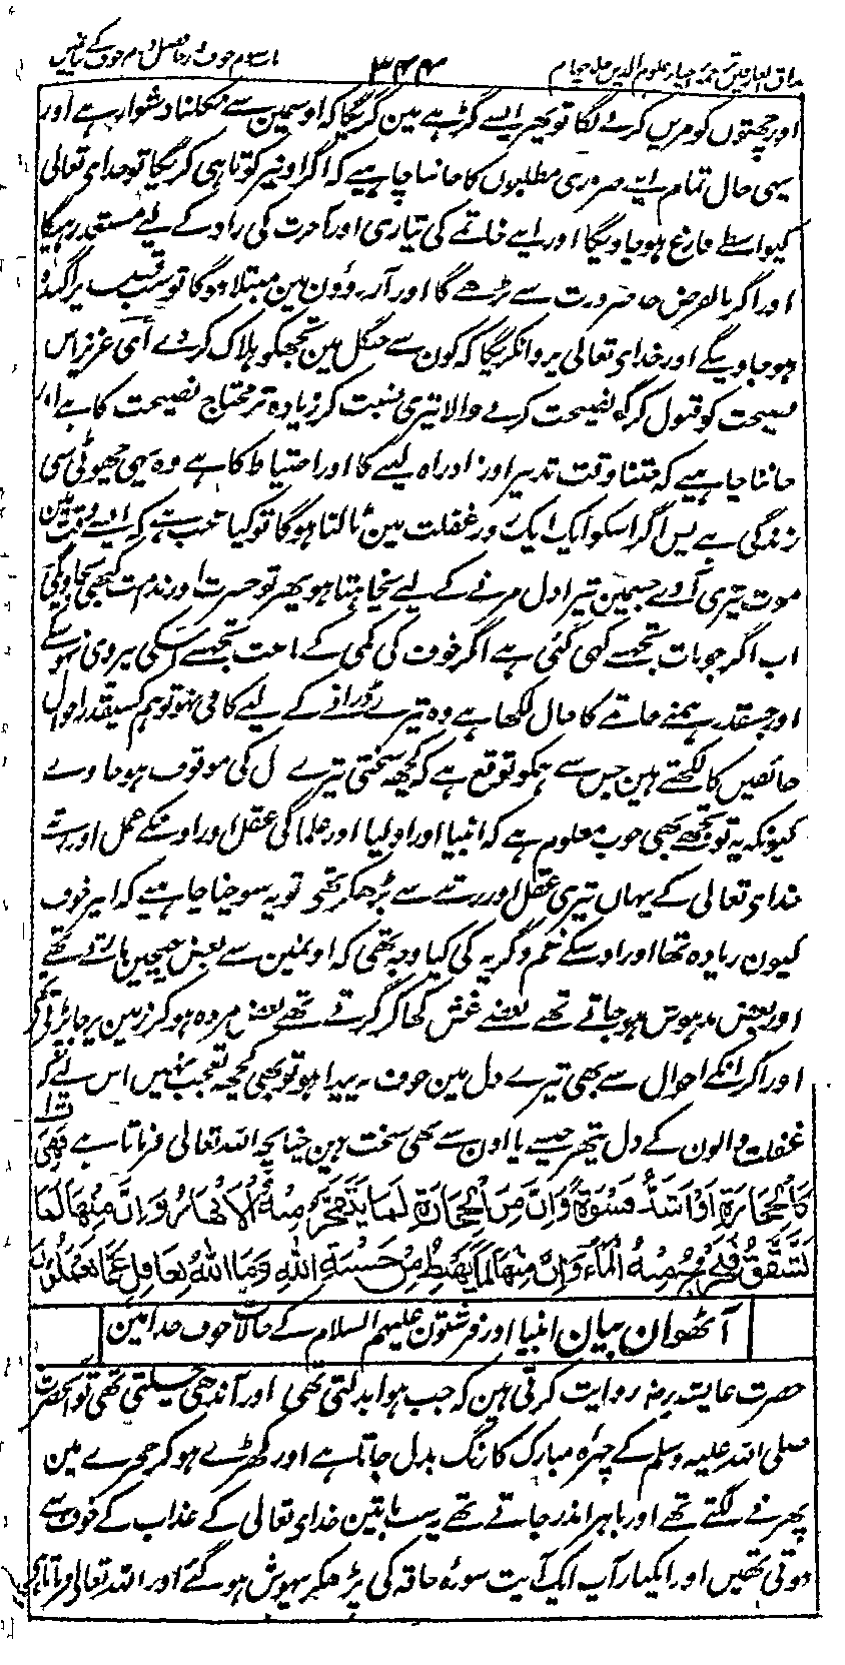 مذاق العارفین ترجمہ احیاء علوم الدین جلد چہارم
۳۴۴
باب سوم خوف
اور چھتوں کو مزین کرنے لگا تو پھر ایسے گڑہے مین گریگا کہ اوسمین سے نکلنا دشوار ہے اور
یہی حال تمام اپنے ضروری مطلبوں کا جاننا چاہیے کہ اگر اونپر کوتاہی کریگا تو خدای تعالی
کیواسطے فارغ ہو جاویگا اور اپنے خاتمے کی تیاری اور آخرت کی زاد کے لیے مستعد رہیگا
اور اگر بالفرض حد ضرورت سے بڑھے گا اور آرزوؤن مین مبتلا ہوگا تو سب قلب پراگندہ
ہو جاوینگے اور خدای تعالی پروا نکریگا کہ کون سے جنگل مین تجھکو ہلاک کر دے ای عزیز اس
نصیحت کو قبول کر کہ نصیحت کرنے والا تیری نسبت کر زیادہ تر محتاج نصیحت کا ہے اور
جاننا چاہیے کہ جتنا وقت تدبیر اور زاد راہ لینے کا اور احتیاط کا ہے وہ یہی چھوٹی سی
زندگی ہے پس اگر اسکو ایک ایک روز غفلت مین ٹالتا ہوگا تو کیا عجب ہے کہ ایسے وقت مین
موت تیری آوے جسمین تیرا دل مرنے کے لیے نچاہتا ہو پھر تو حسرت اور ندامت کبھی نجاویگی
اب اگر جو بات تجھسے کہی گئی ہے اگر خوف کی کمی کے باعث تجھسے اسکی پیروی نہوسکے
اور جسقدر ہمنے خاتمے کا حال لکھا ہے وہ تیرے ڈرانے کے لیے کافی نہو تو ہم کسیقدر احوال
خائفین کا لکھتے ہین جس سے ہمکو توقع ہے کہ کچھ سختی تیرے دل کی موقوف ہو جاوے
کیونکہ یہ تو تجھے بھی خوب معلوم ہے کہ انبیا اور اولیا اور علما کی عقل اور اونکے عمل اور رتبے
خدای تعالی کے یہاں تیری عقل اور رتبے سے بڑھکر تھے تو یہ سوچنا چاہیے کہ اونپر خوف
کیون زیادہ تھا اور اوسکے غم و گریہ کی کیا وجہ تھی کہ اونمین سے بعض چیخین مارتے تھے
اور بعض مدہوش ہو جاتے تھے بعضے غش کھا کر گرتے تھے بعض مردہ ہو کر زمین پر جا پڑتے تھے
اور اگر انکے احوال سے بھی تیرے دل مین خوف نہ پیدا ہو تو بھی کچھ تعجب نہیں اس لیے کہ
غفلت والون کے دل پتھر جیسے یا اون سے بھی سخت ہین چنانچہ اللہ تعالی فرماتا ہے فَهِيَ
كَالْحِجَارَةِ أَوْ أَشَدُّ قَسْوَةً وَإِنَّ مِنَ الْحِجَارَةِ لَمَا يَتَفَجَّرُ مِنْهُ الْأَنْهَارُ وَإِنَّ مِنْهَا لَمَا
يَشَّقَّقُ فَيَخْرُجُ مِنْهُ الْمَاءُ وَإِنَّ مِنْهَا لَمَا يَهْبِطُ مِنْ خَشْيَةِ اللّٰهِ وَمَا اللّٰهُ بِغَافِلٍ عَمَّا تَعْمَلُونَ
آٹھوان بیان انبیا اور فرشتون علیہم السلام کے حالات خوف خدا مین
حضرت عایشہ رض روایت کرتی ہین کہ جب ہوا بدلتی تھی اور آندھی چلتی تھی تو آنحضرت
صلی اللہ علیہ وسلم کے چہرہ مبارک کا رنگ بدل جاتا ہے اور کھڑے ہو کر حجرے مین
پھرنے لگتے تھے اور باہر اندر جاتے تھے یہ سب باتین خدای تعالی کے عذاب کے خوف سے
ہوتی تھیں اور ایکبار آپ ایک آیت سورہ حاقہ کی پڑھکر بیہوش ہو گئے اور اللہ تعالی فرماتا ہے